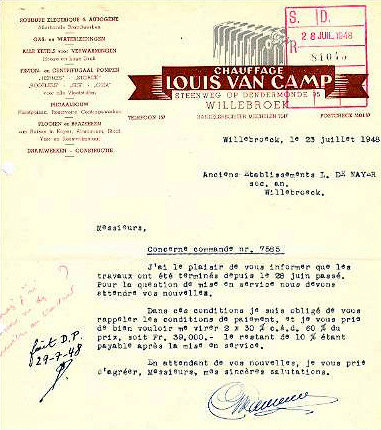 SOUDURE ELECTRIQUE & AUTOGENE
GAS- en WATERLEIDINGEN
ALLE KETELS voor VERWARMINGEN
Hooge en Lage Druk
STOOM- en CENTRIFUGAAL POMPEN
voor alle Vloeistoffen
METAALBOUW
PLOOIEN en BRAZEEREN
DRAAIWERKEN - CONSTRUCTIE
S. D.
28 JUIL. 1948
R
81045
CHAUFFAGE
LOUIS VAN CAMP
STEENWEG OP DENDERMONDE 95
WILLEBROEK
TELEFOON 157
HANDELSREGISTER MECHELEN
Willebroeck, le 23 juillet 1948
Anciens Etablissements L. DE NAYER
soc. an.
Willebroeck.
Messieurs,
Concerne commande nr. 7585
J'ai le plaisir de vous informer que les
travaux ont été terminés depuis le 28 juin passé.
Pour la question de mise en service nous devons
attendre vos nouvelles.
Dans ces conditions je suis obligé de vous
rappeler les conditions de paiement, et je vous prie
de bien vouloir me virer 2 x 30 % c.à.d. 60 % du
prix, soit Fr. 39,000.- le restant de 10 % étant
payable après la mise en service.
En attendant de vos nouvelles, je vous prie
d'agréer, Messieurs, mes sincères salutations.
fait D.P.
29-7-48